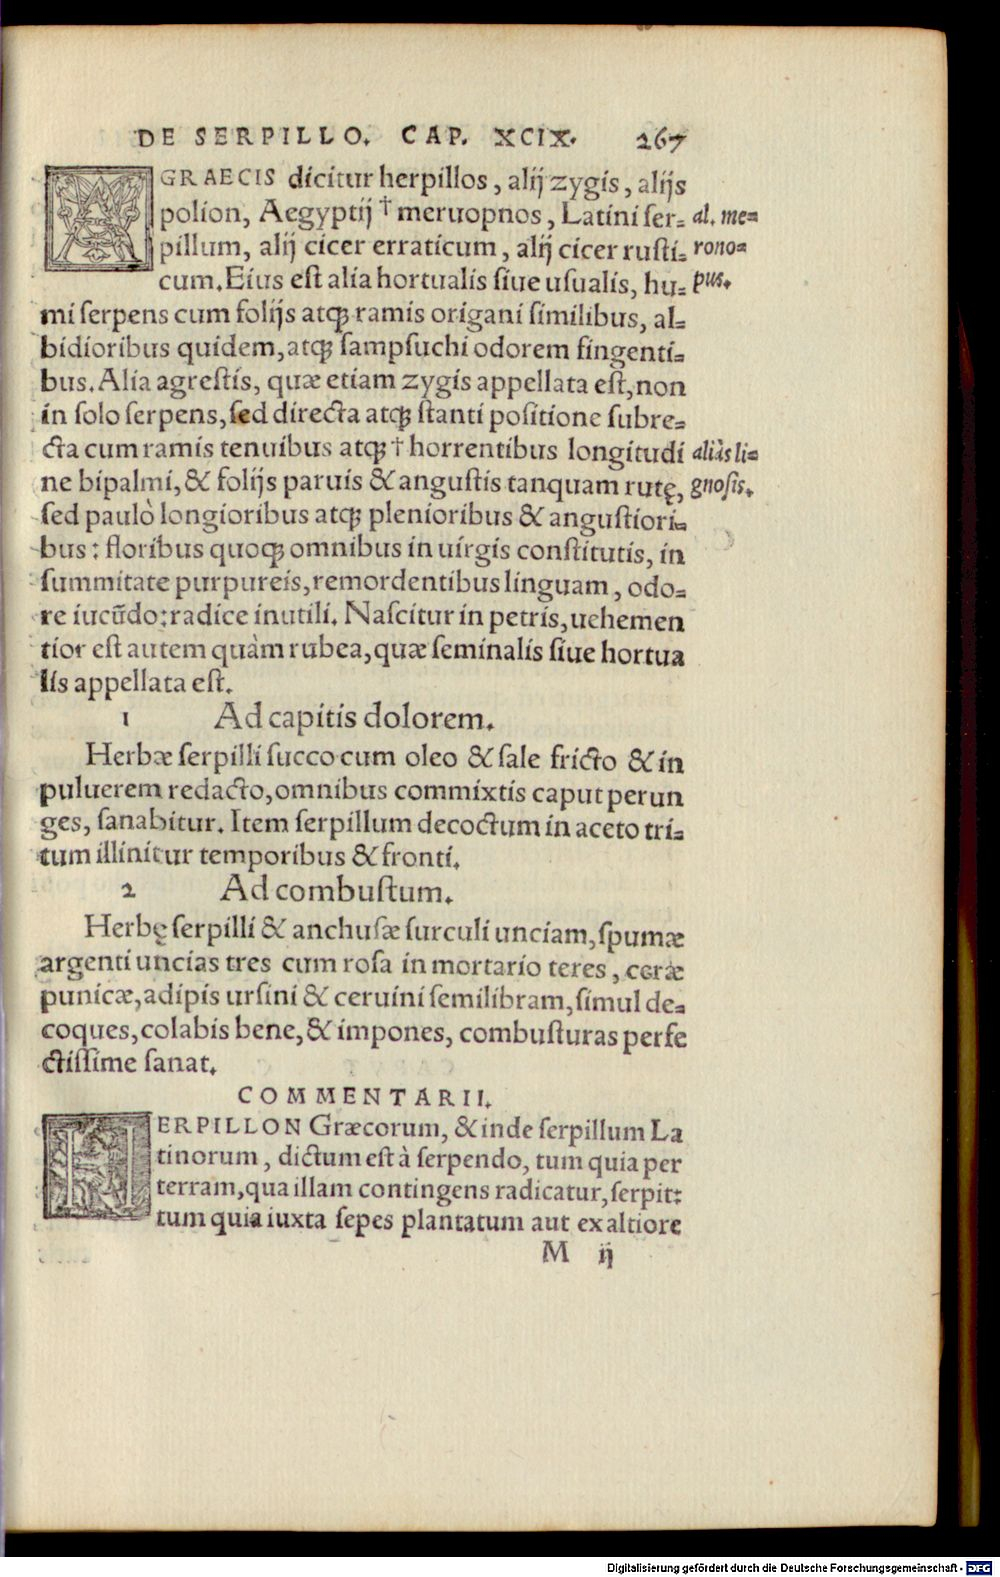 DE SERPILLO. CAP. XCIX. 267
A GRAECIS dicitur herpillos, alij zygis, alijs
polion, Aegyptij † meruopnos, Latini ser= al. me=
pillum, alij cicer erraticum, alij cicer rusti= rono=
cum. Eius est alia hortualis siue usualis, hu= pus.
mi serpens cum folijs atqꝫ ramis origani similibus, al=
bidioribus quidem, atqꝫ sampsuchi odorem fingenti=
bus. Alia agrestis, quæ etiam zygis appellata est, non
in solo serpens, sed directa atqꝫ stanti positione subre=
cta cum ramis tenuibus atqꝫ † horrentibus longitudi aliàs li=
ne bipalmi, & folijs paruis & angustis tanquam rutę, gnosis.
sed paulò longioribus atqꝫ plenioribus & angustiori=
bus: floribus quoqꝫ omnibus in uirgis constitutis, in
summitate purpureis, remordentibus linguam, odo=
re iucũdo: radice inutili. Nascitur in petris, uehemen
tior est autem quàm rubea, quæ seminalis siue hortua
lis appellata est.
1 Ad capitis dolorem.
Herbæ serpilli succo cum oleo & sale fricto & in
puluerem redacto, omnibus commixtis caput perun
ges, sanabitur. Item serpillum decoctum in aceto tri=
tum illinitur temporibus & fronti.
2 Ad combustum.
Herbę serpilli & anchusæ surculi unciam, spumæ
argenti uncias tres cum rosa in mortario teres, ceræ
punicæ, adipis ursini & ceruini semilibram, simul de=
coques, colabis bene, & impones, combusturas perfe
ctissime sanat.
COMMENTARII.
HERPILLON Græcorum, & inde serpillum La
tinorum, dictum est à serpendo, tum quia per
terram, qua illam contingens radicatur, serpit:
tum quia iuxta sepes plantatum aut ex altiore
M ij
Digitalisierung gefördert durch die Deutsche Forschungsgemeinschaft - DFG